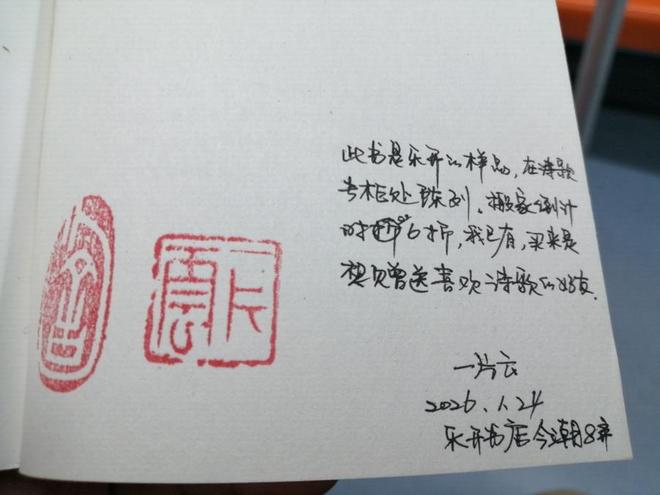 此书是乐开的样品，在诗歌
专柜处陈列。搬家倒计
时6折，我已有，买来是
想赠送喜欢诗歌的好友.
一片云
2026.1.24
乐开书店今潮8弄
一片云